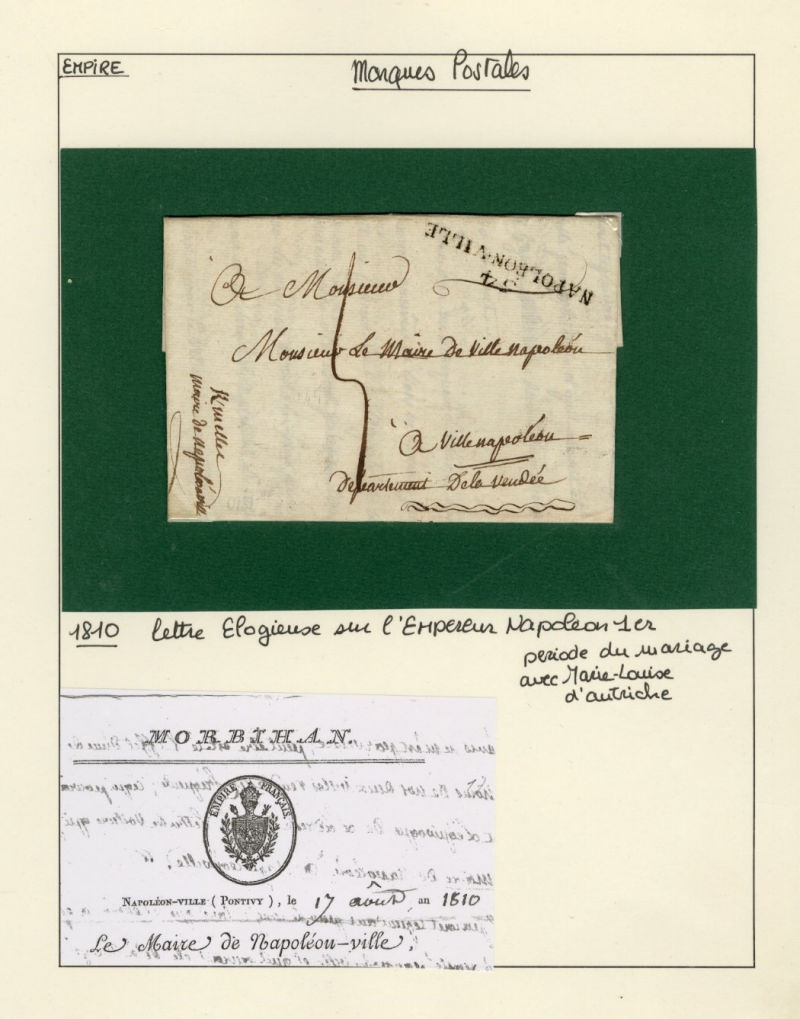 EMPIRE
Marques Postales
54
NAPOLÉON-VILLE
A Monsieur
Monsieur Le Maire De Ville napoléon
A Ville napoléon =
Departement De la Vendée
maire de napoléonville
1810 lettre Elogieuse sur l'Empereur Napoléon 1er
periode du mariage
avec Marie-Louise
d'autriche
MORBIHAN.
EMPIRE FRANÇAIS
NAPOLÉON-VILLE (PONTIVY), le 17 août an 1810
Le Maire de Napoléon-ville,